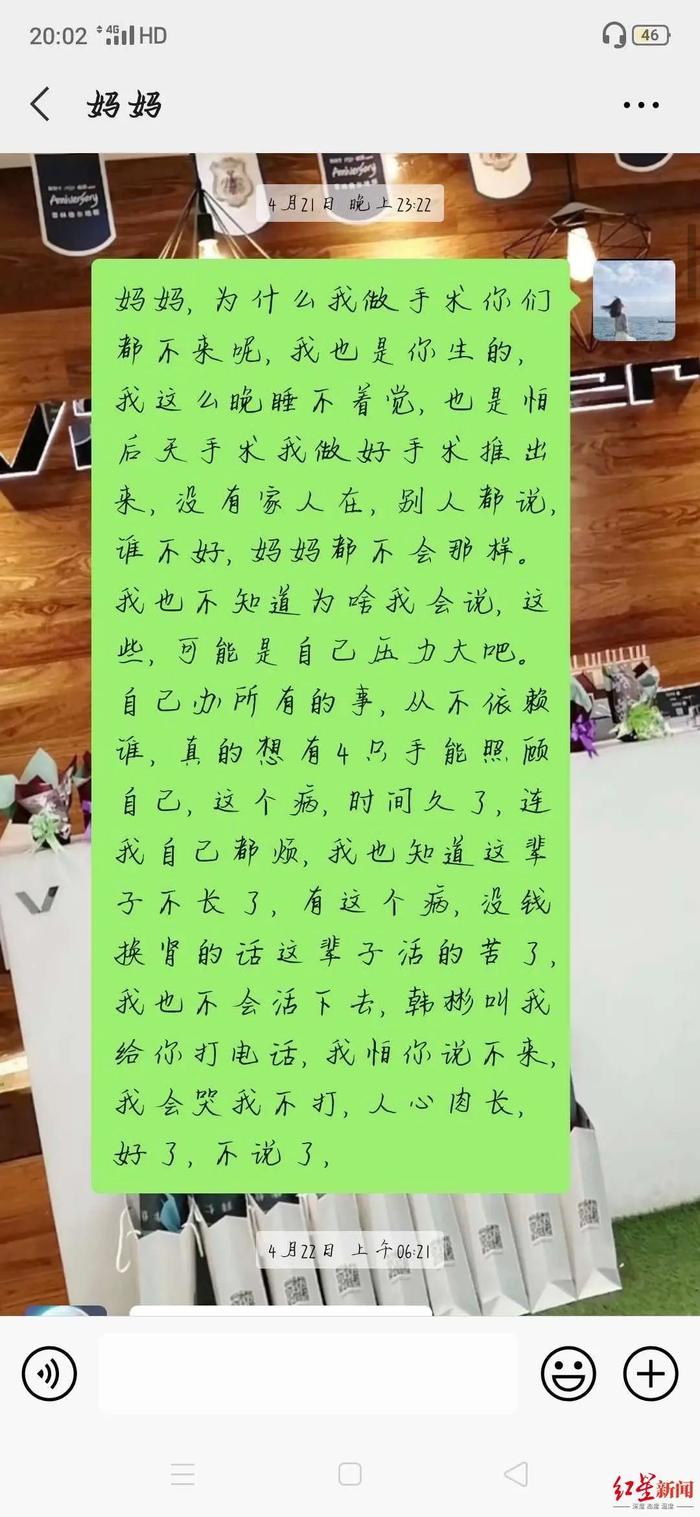 20:02
4G
HD
46
妈妈
Anniversary
Anniversary
4月21日 晚上23:22
妈妈，为什么我做手术你们
都不来呢，我也是你生的，
我这么晚睡不着觉，也是怕
后天手术我做好手术推出
来，没有家人在，别人都说，
谁不好，妈妈都不会那样。
我也不知道为啥我会说，这
些，可能是自己压力大吧。
自己办所有的事，从不依赖
谁，真的想有4只手能照顾
自己，这个病，时间久了，连
我自己都烦，我也知道这辈
子不长了，有这个病，没钱
换肾的话这辈子活的苦了，
我也不会活下去，韩彬叫我
给你打电话，我怕你说不来，
我会哭我不打，人心肉长，
好了，不说了，
4月22日 上午06:21
红星新闻
深度 态度 温度